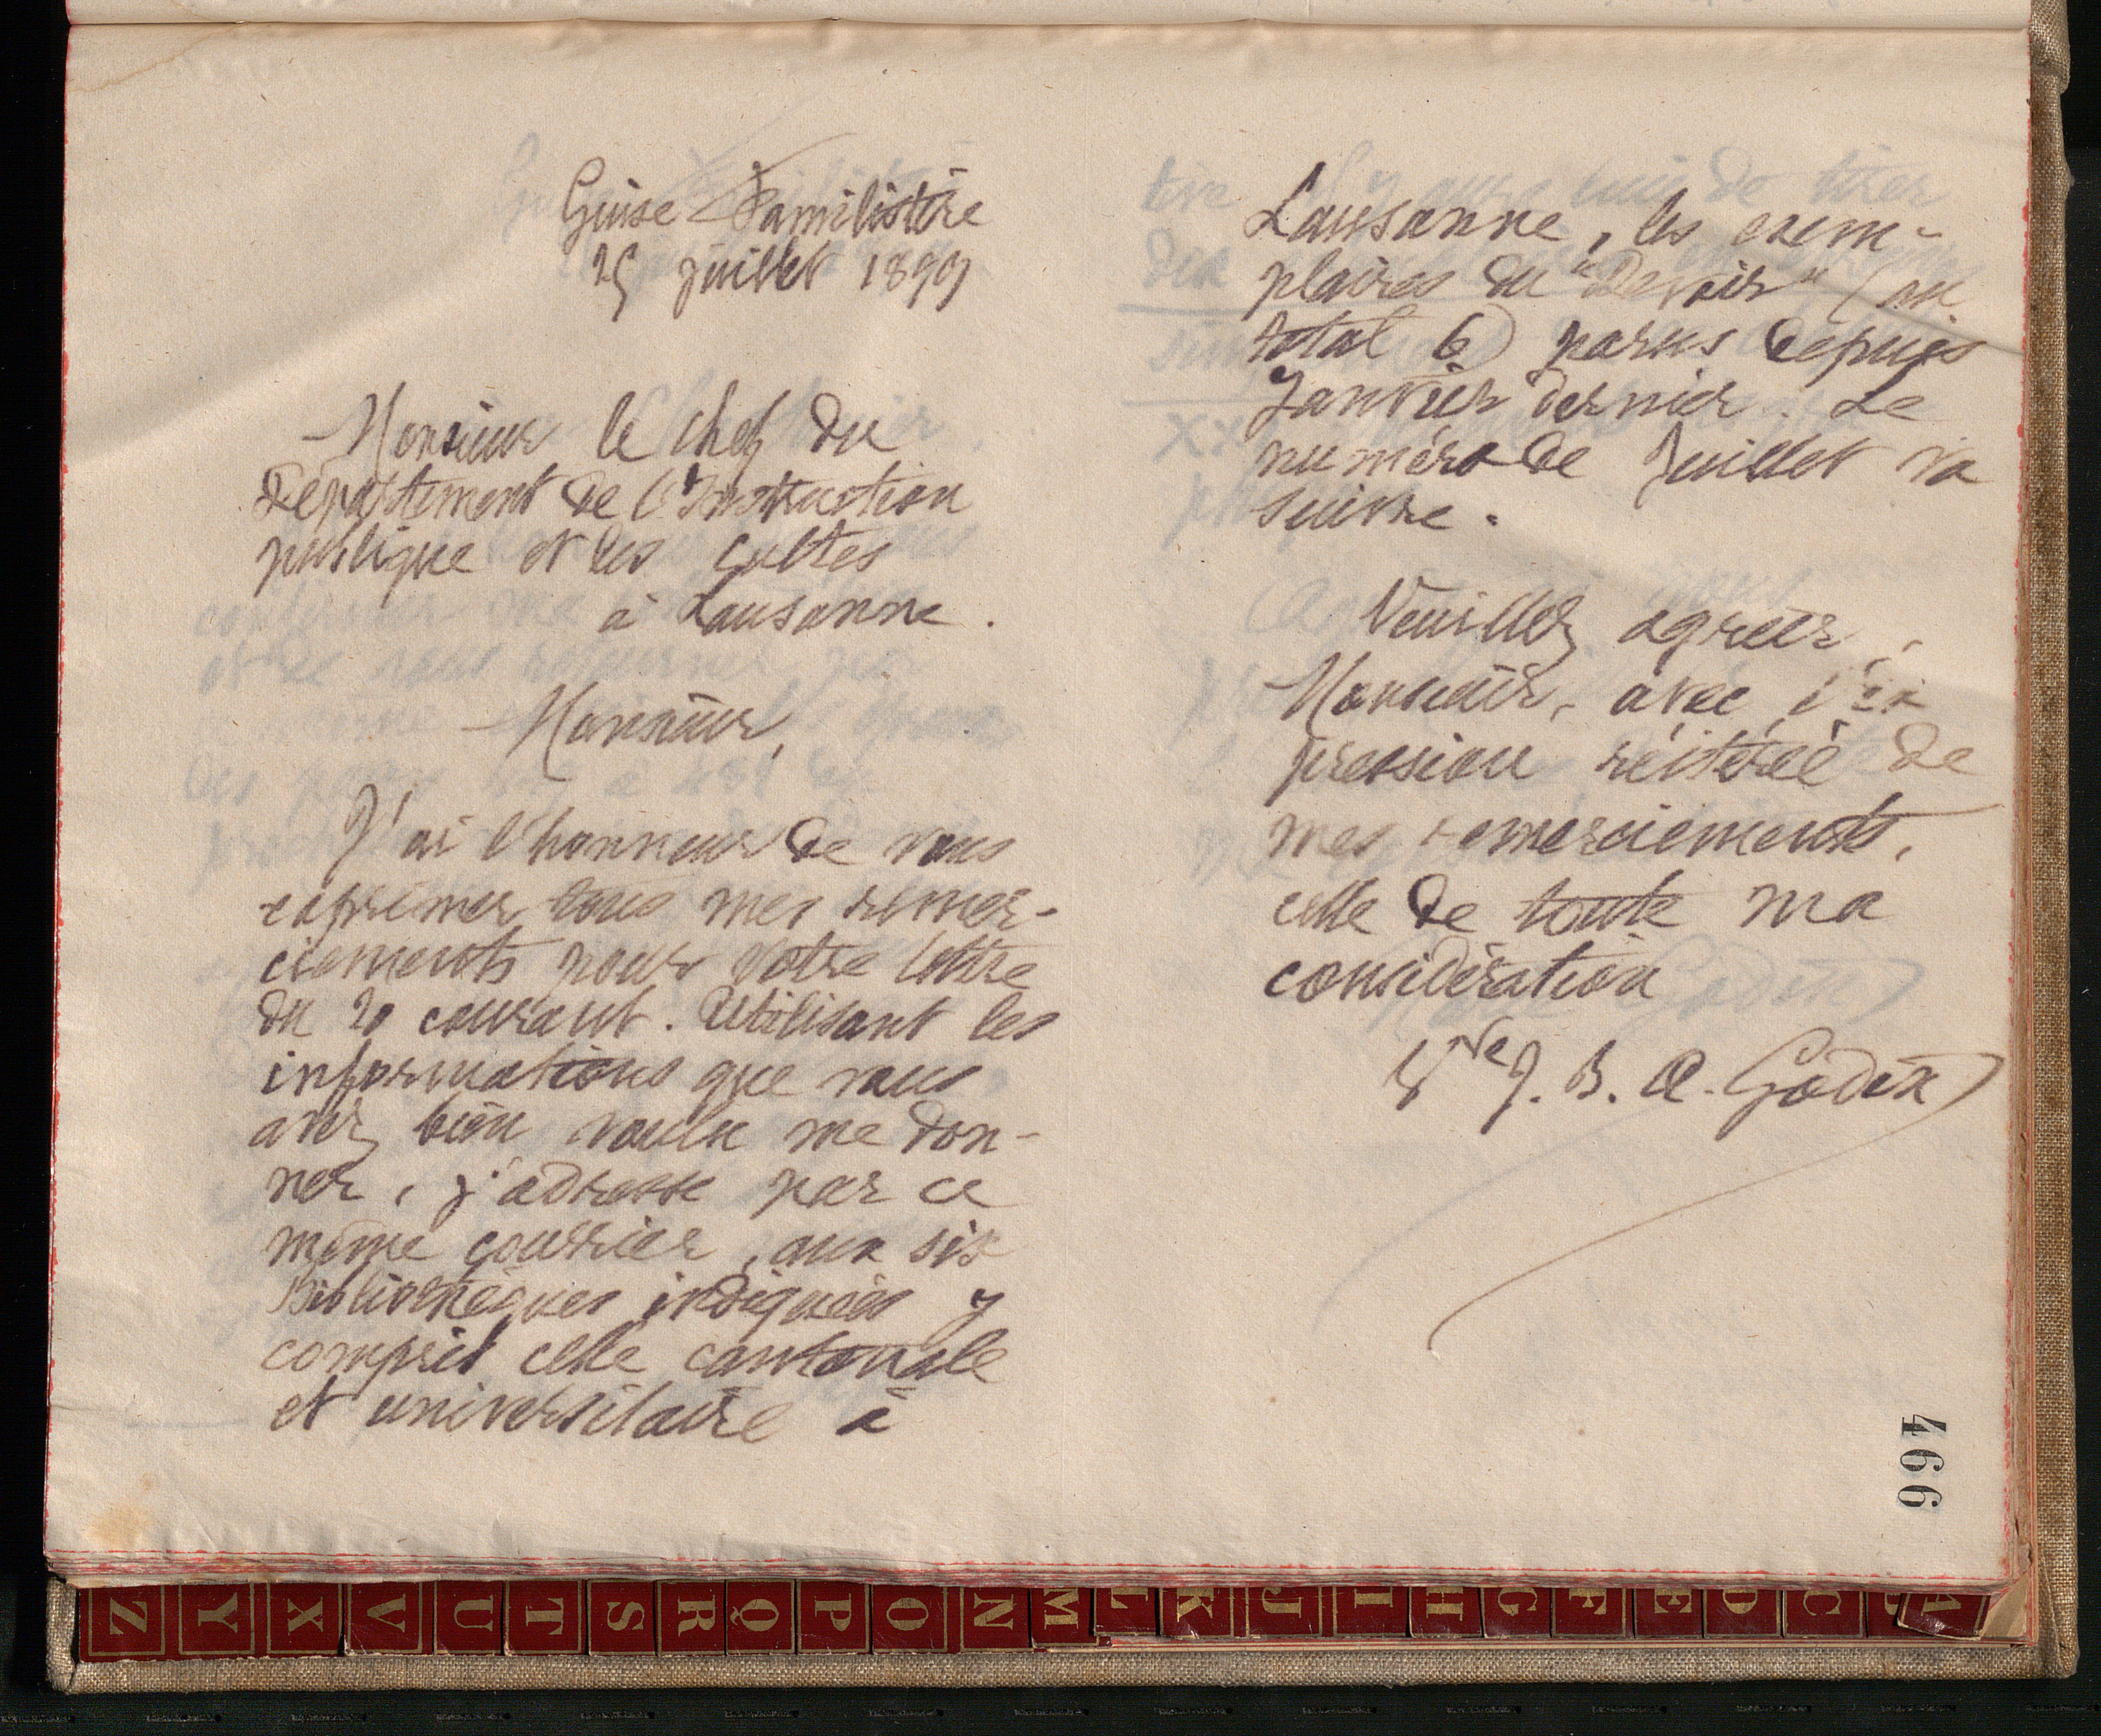 Guise Familistère
25 juillet 1899
Monsieur le chef du
Département de l'Instruction
publique et des cultes
à Lausanne.
Monsieur,
J'ai l'honneur de vous
exprimer tous mes remer-
ciements pour votre lettre
du 20 courant. Utilisant les
informations que vous
avez bien voulu me don-
ner, j'adresse par ce
même courrier, aux six
Bibliothèques indiquées y
compris celle cantonale
et universitaire à
Lausanne, les exem-
plaires du "Devoir" (au
total 6) parus depuis
Janvier dernier. Le
numéro de Juillet va
suivre.
Veuillez agréer,
Monsieur, avec l'ex
pression réitérée de
mes remerciements,
celle de toute ma
considération
Vve J. B. A. Godin
466
Z Y X V U T S R Q P O N M L K J I H G F E D C B A